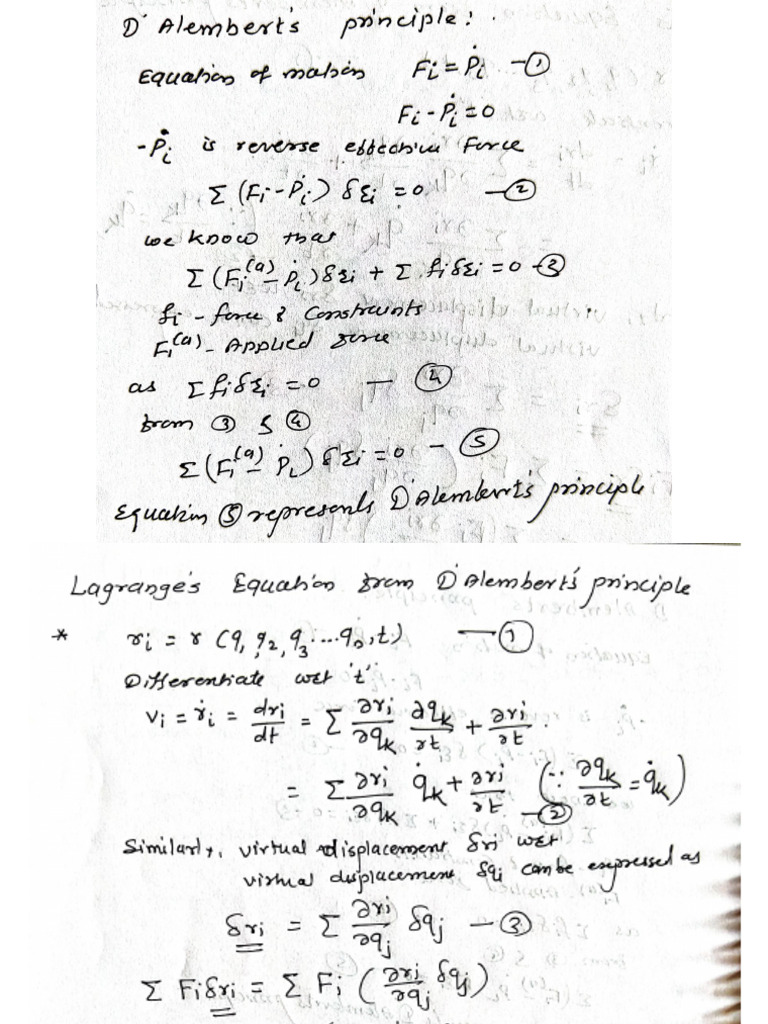 D'Alembert's principle:
Equation of motion Fi = Ṗi —①
Fi - Ṗi = 0
-Ṗi is reverse effective force
Σ (Fi - Ṗi) δεi = 0 —②
we know that
Σ (Fi^(a) - Ṗi) δεi + Σ fi δεi = 0 —③
fi - force & constraints
Fi^(a) - Applied force
as Σ fi δεi = 0 — ④
from ③ & ④
Σ (Fi^(a) - Ṗi) δεi = 0 — ⑤
Equation ⑤ represents D'Alembert's principle
Lagrange's Equation from D'Alembert's principle
* ri = r (q1, q2, q3....qn, t) —①
Differentiate wrt 't'.
Vi = ṙi = dri/dt = Σ ∂ri/∂qk ∂qk/∂t + ∂ri/∂t
= Σ ∂ri/∂qk q̇k + ∂ri/∂t (∵ ∂qk/∂t = q̇k) —②
Similarly, virtual displacement δri wrt
virtual displacement δqi can be expressed as
δri = Σ ∂ri/∂qj δqj —③
Σ Fi δri = Σ Fi (∂ri/∂qj δqj)